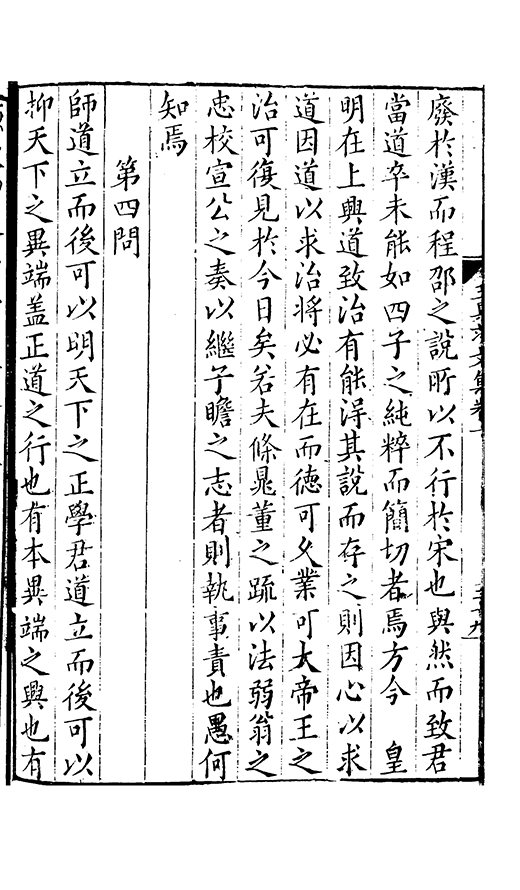 廢於漢而程邵之說所以不行於宋也與然而致君
當道卒未能如四子之純粹而簡切者焉方今　皇
明在上興道致治有能得其說而存之則因心以求
道因道以求治將必有在而德可久業可大帝王之
治可復見於今日矣若夫條晁董之疏以法弱翁之
忠校宣公之奏以繼子瞻之志者則執事責也愚何
知焉
第四問
師道立而後可以明天下之正學君道立而後可以
抑天下之異端盖正道之行也有本異端之興也有